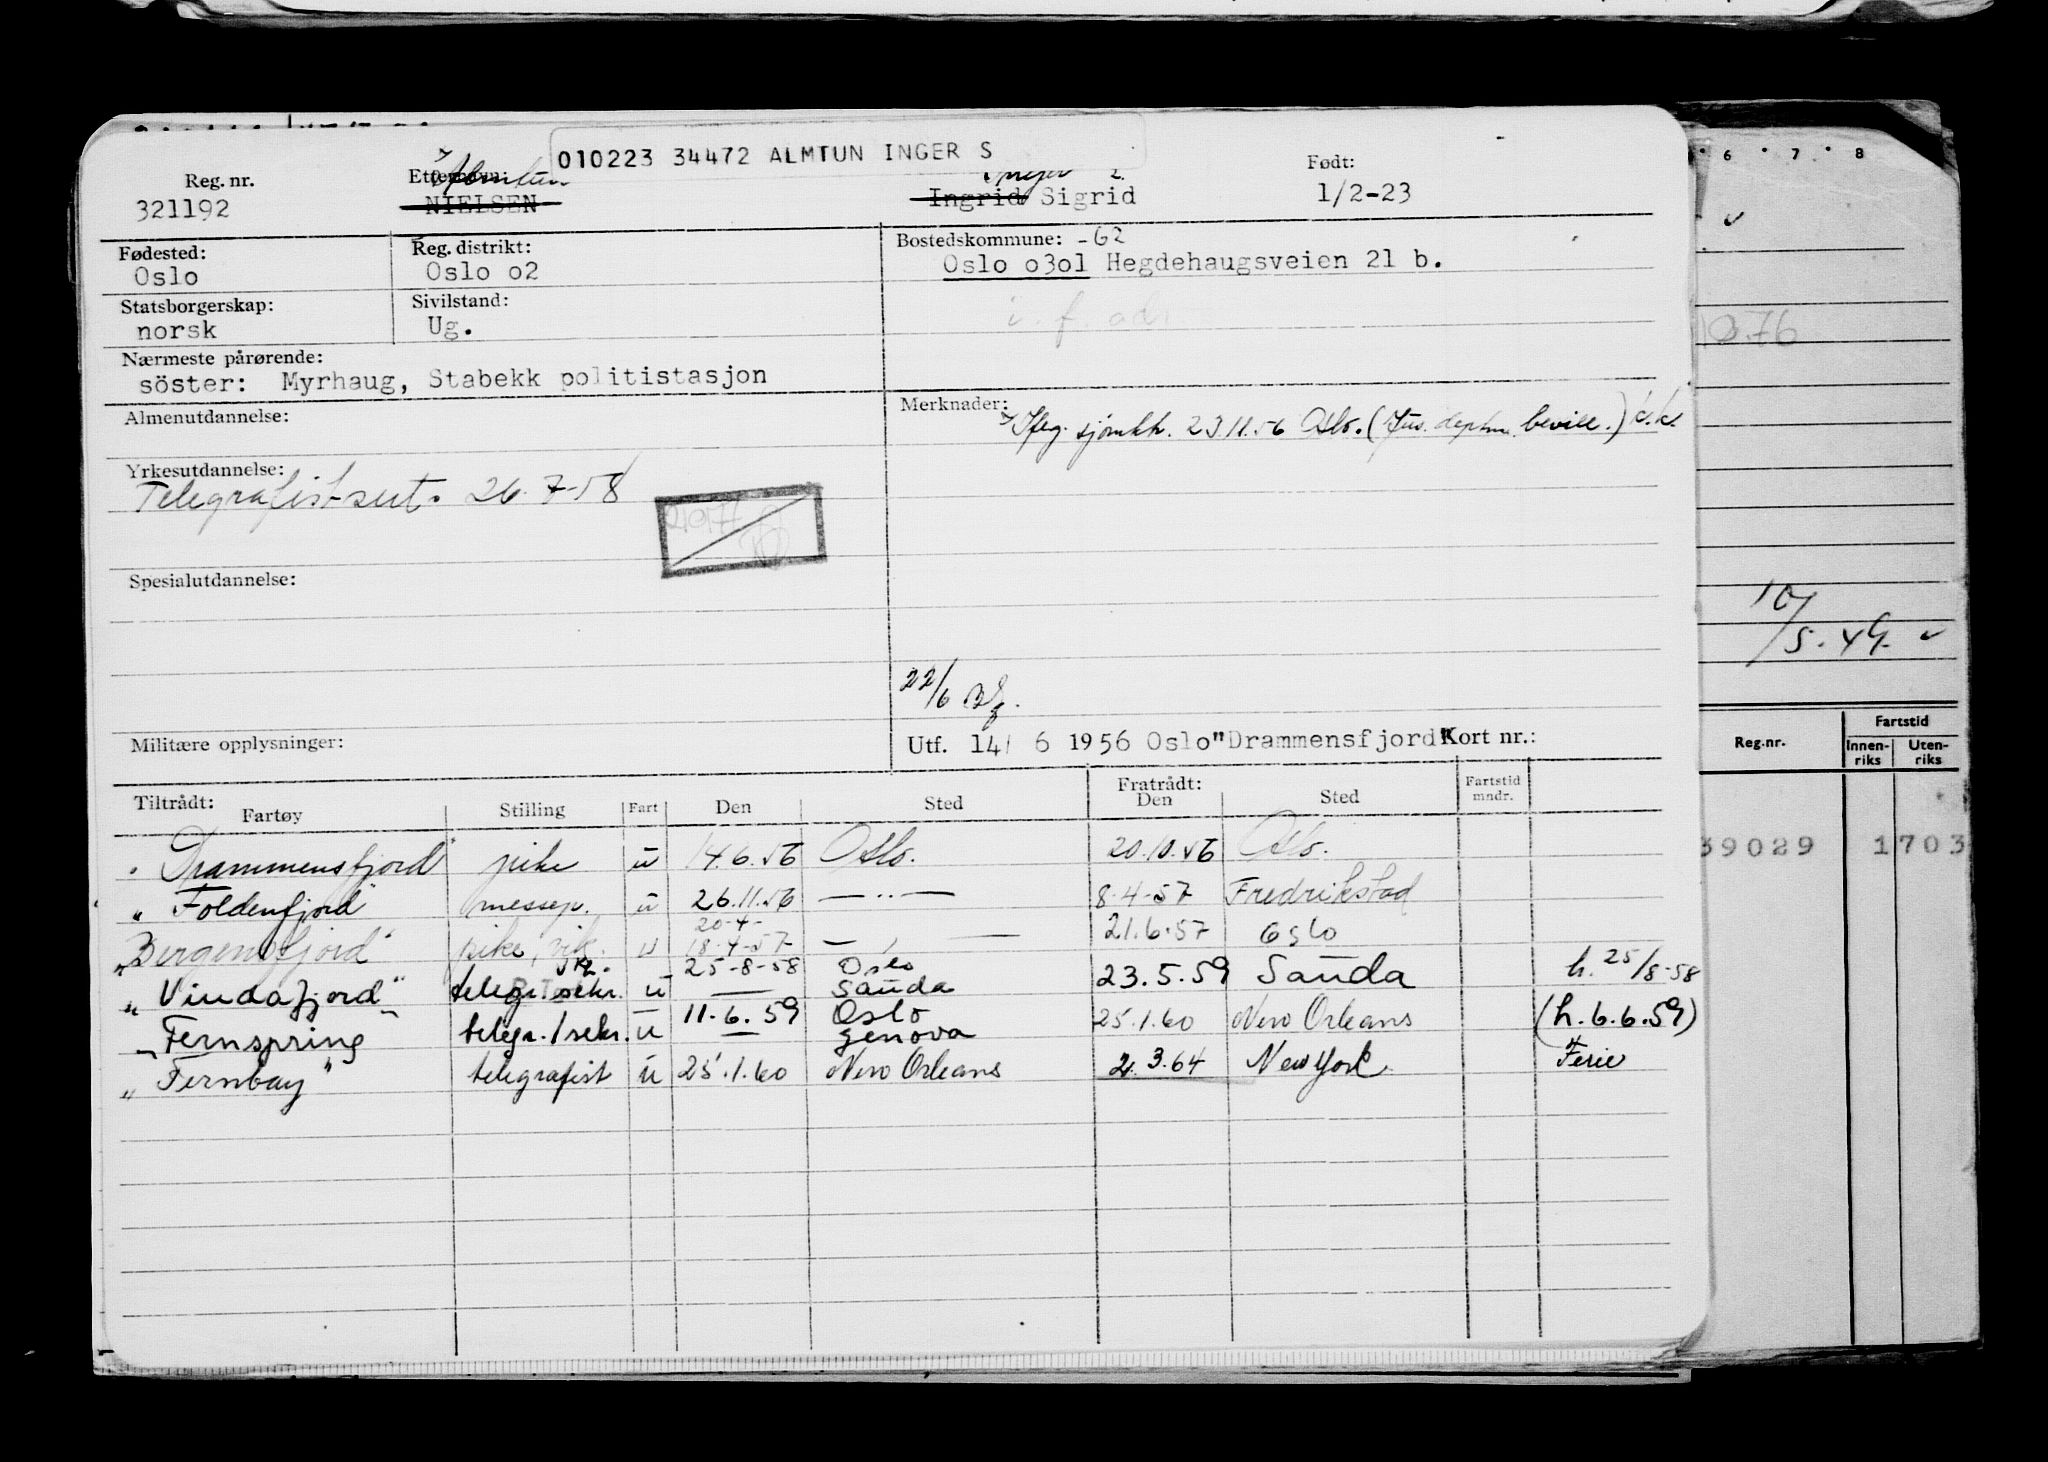 010223 34472 ALMTUN INGER S
Reg. nr. Etternavn: Almtun Inger 2. Født:
321192 NIELSEN Ingrid Sigrid 1/2-23
Fødested: Reg. distrikt: Bostedskommune: -62
Oslo Oslo o2 Oslo o3o1 Hegdehaugsveien 21 b.
Statsborgerskap: Sivilstand: i. f. adr.
norsk Ug.
Nærmeste pårørende:
söster: Myrhaug, Stabekk politistasjon
Almenutdannelse: Merknader:
Iflg. sjømkk. 23.11.56 Oslo. (Jus. deptm. bevill.)
Yrkesutdannelse:
Telegrafist-sert. 26.7-58
Spesialutdannelse:
22/6
Militære opplysninger: Utf. 14/ 6 1956 Oslo "Drammensfjord" Kort nr.:
Tiltrådt: Fratrådt: Fartstid
Fartøy Stilling Fart Den Sted Den Sted mndr.
"Drammensfjord" pike u 14.6.56 Oslo. 20.10.56 Oslo.
"Foldenfjord" messep. u 26.11.56 — " — 8-4-57 Fredrikstad
20-4-
"Bergensfjord" pike, vik. u 18-4-57- — " — 21.6.57 Oslo
25-8-58 Oslo h. 25/8-58
"Vindafjord" telegr. sekr. u — Sauda 23.5.59 Sauda
11.6.59 Oslo
"Fernspring telegr./sekr. u — Genova 25.1.60 New Orleans (h. 6.6.59)
"Fernbay" telegrafist u 25.1.60 New Orleans 2.3.64 New York Ferie
6 7 8
10.76
10/5.49
Reg.nr. Fartstid
Innen-riks Uten-riks
39029 1703